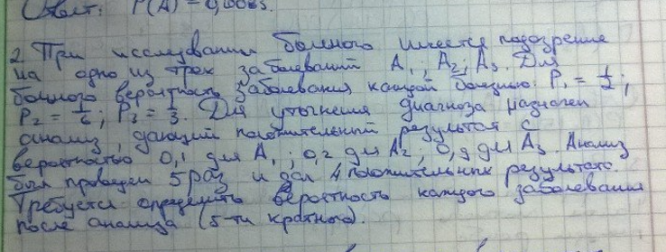 Ответ: P(A) = 0,0083.
2. При исследовании больного имеется подозрение
на одно из трех заболеваний A₁; A₂; A₃. Для
больного вероятность заболевания каждой болезнью: P₁ = 1/2;
P₂ = 1/6; P₃ = 1/3. Для уточнения диагноза назначен
анализ, дающий положительный результат с
вероятностью 0,1 для A₁; 0,2 для A₂; 0,9 для A₃. Анализ
был проведен 5 раз и дал 4 положительных результата.
Требуется определить вероятность каждого заболевания
после анализа (5-ти кратного).